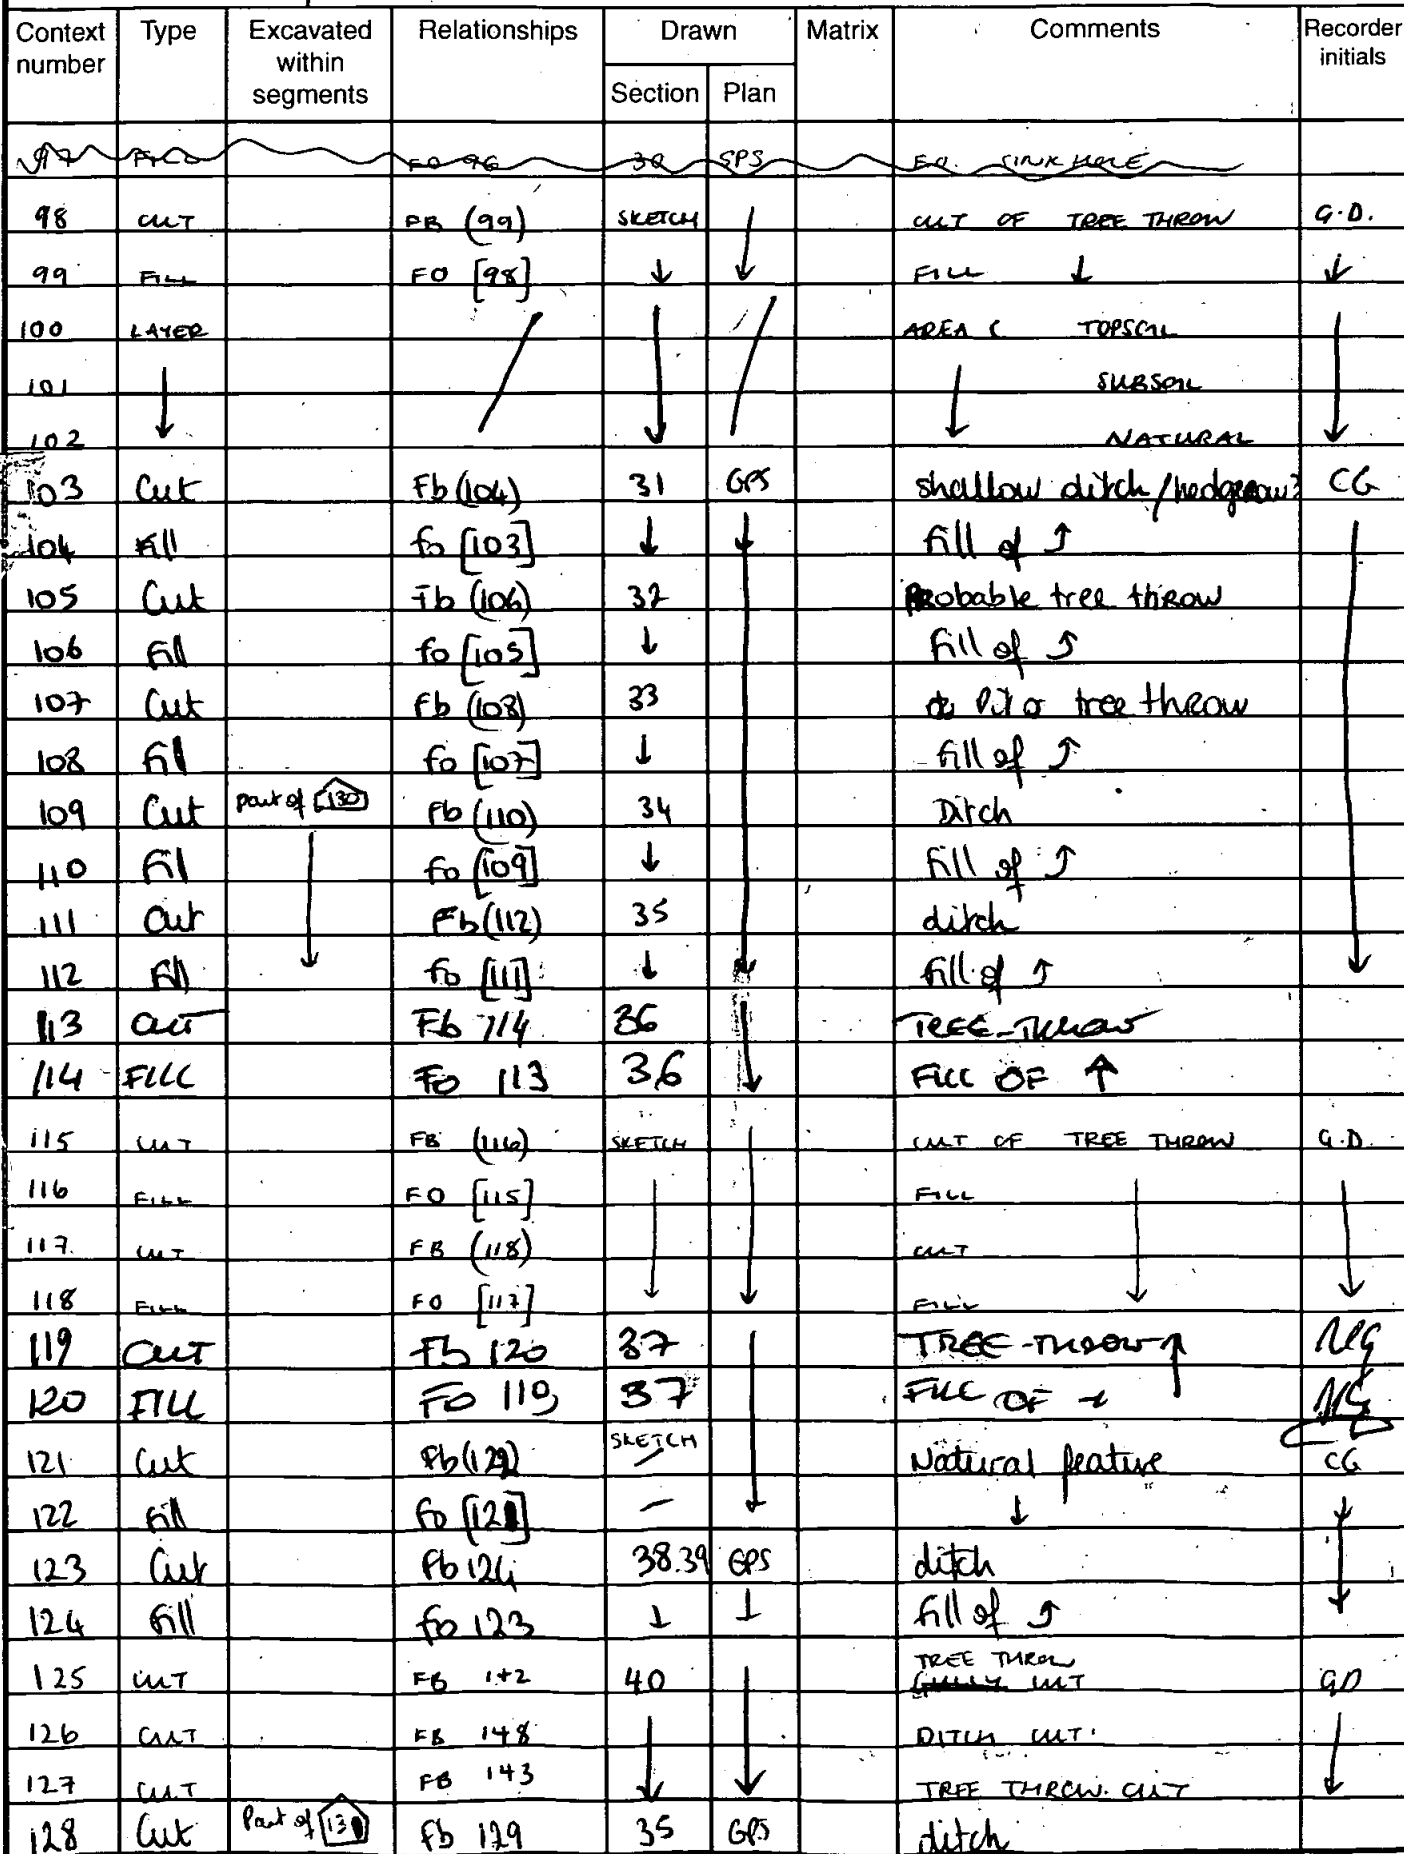 Context number Type Excavated within segments Relationships Drawn Section Plan Matrix Comments Recorder initials
97 FILL FO 96 30 GPS F.O. SINK HOLE
98 CUT FB (99) SKETCH ↓ CUT OF TREE THROW G.D.
99 FILL FO [98] ↓ ↓ FILL ↓ ↓
100 LAYER / ↓ / AREA C TOPSOIL ↓
101 ↓ ↓ SUBSOIL
102 NATURAL
103 Cut Fb (104) 31 GPS shallow ditch / hedgerow? CG
104 Fill fo [103] ↓ ↓ fill of ↑
105 Cut Fb (106) 32 PRobable tree thRow
106 Fill fo [105] ↓ fill of ↑
107 Cut Fb (108) 33 Pit or tree thRow
108 Fill fo [107] ↓ fill of ↑
109 Cut part of 130 Fb (110) 34 Ditch
110 Fill ↓ fo [109] ↓ fill of ↑
111 Cut Fb (112) 35 ditch
112 Fill fo [111] ↓ fill of ↑
113 CUT Fb 114 36 ↓ TREE-THROW
114 FILL Fo 113 36 FILL OF ↑
115 CUT FB (116) SKETCH ↓ CUT OF TREE THROW G.D.
116 FILL FO [115] ↓ FILL ↓ ↓
117. CUT FB (118) CUT
118 FILL FO [117] FILL
119 CUT Fb 120 37 ↓ TREE-THROW ↑ NG
120 FILL Fo 119 37 FILL OF NG
121 Cut Fb (122) SKETCH Natural feature CG
122 Fill fo [121] – ↓ ↓
123 Cut Fb 124 38.39 GPS ditch ↓
124 Fill fo 123 ↓ ↓ fill of ↑
125 CUT FB 142 40 ↓ TREE THROW GULLY CUT GD
126 CUT FB 148 ↓ DITCH CUT. ↓
127 CUT FB 143 TREE THROW. CUT
128 Cut Part of 131 Fb 129 35 GPS ditch